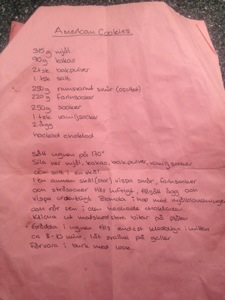 American Cookies
315g mjöl
90g kakao
2 tsk bakpulver
1 tsk salt
250g rumsvarmt smör (osaltat)
220g farinsocker
250g socker
1 tsk vaniljsocker
2 ägg
hackad choklad
Sätt ugnen på 170°
Sila ner mjöl, kakao, bakpulver, vaniljsocker
och salt i en skål
I en annan skål (stor) vispa smör, farinsocker
och strösocker tills luftigt. Tillsätt ägg och
vispa ordentligt. Blanda i hop med mjölblandningen
och rör ner i den hackade chokladen.
Klicka ut matskedsstora bitar på plåten
Grädda i ugnen tills en
ca 8-10 min, låt svalna på galler
Förvara i burk med lock